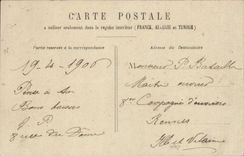 CARTE POSTALE
a utiliser seulement dans le régime intérieur (FRANCE, ALGERIE et TUNISIE)
Partie réservée à la correspondance
Adresse du Destinataire
19-4-1906
Pense à
Bons baisers
Monsieur P.
Maître ouvrier
Compagnie d'ouvriers
Rennes
Ille et Vilaine